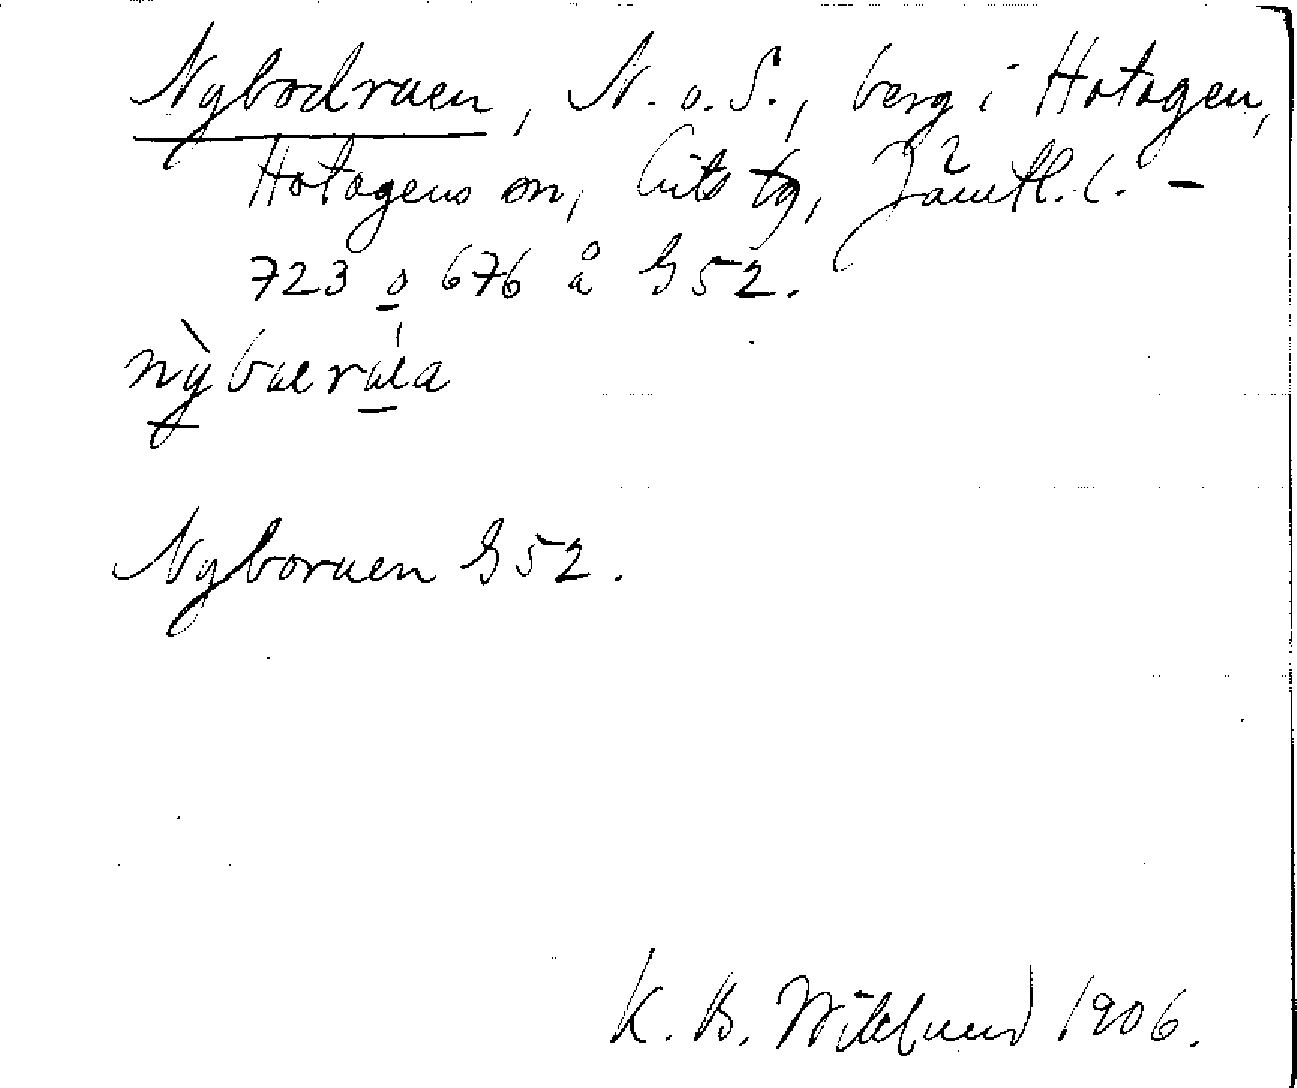 Nybodruen, N. o. S., berg i Hotagen,
Hotagens sn, Lits tg, Jämtl. l. –
723 o 676 å G 52.
nỳbueru̱a
Nyboruen G 52.
K. B. Wiklund 1906.